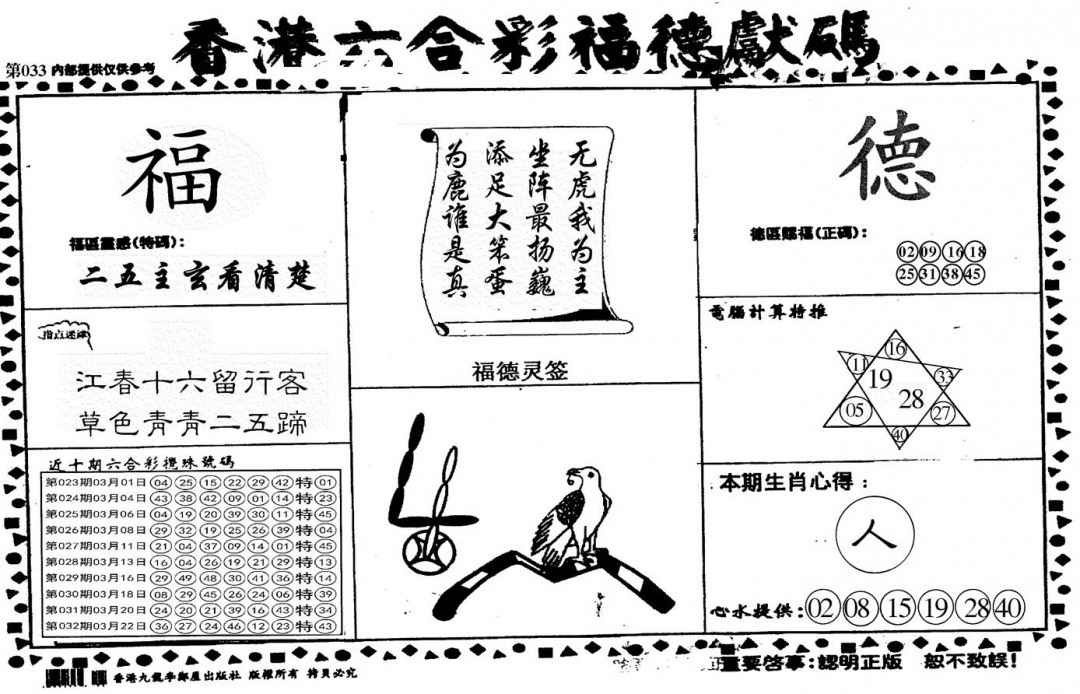 香港六合彩福德獻碼
第033 内部提供仅供参考
福
福區靈感(特碼):
二五主玄看清楚
指点迷津
江春十六留行客
草色青青二五蹄
近十期六合彩攪珠號碼
第023期03月01日 04 25 15 22 29 42 特 01
第024期03月04日 43 38 42 09 01 14 特 23
第025期03月06日 04 19 20 39 30 11 特 45
第026期03月08日 29 32 19 25 26 39 特 04
第027期03月11日 21 04 37 09 14 01 特 45
第028期03月13日 16 04 26 19 21 29 特 13
第029期03月16日 29 49 48 30 41 36 特 14
第030期03月18日 08 29 45 26 24 06 特 39
第031期03月20日 24 20 21 39 16 43 特 34
第032期03月22日 36 27 24 46 12 23 特 43
无虎我为主
坐阵最扬巍
添足大笨蛋
为鹿谁是真
福德灵签
德
德區賜福(正碼):
02 09 16 18
25 31 38 45
電腦計算特推
16
11 33
19
28
05 27
40
本期生肖心得:
人
心水提供: 02 08 15 19 28 40
香港九龍李鄭屋出版社 版權所有 拷貝必究
重要啓事:認明正版 恕不致誤!